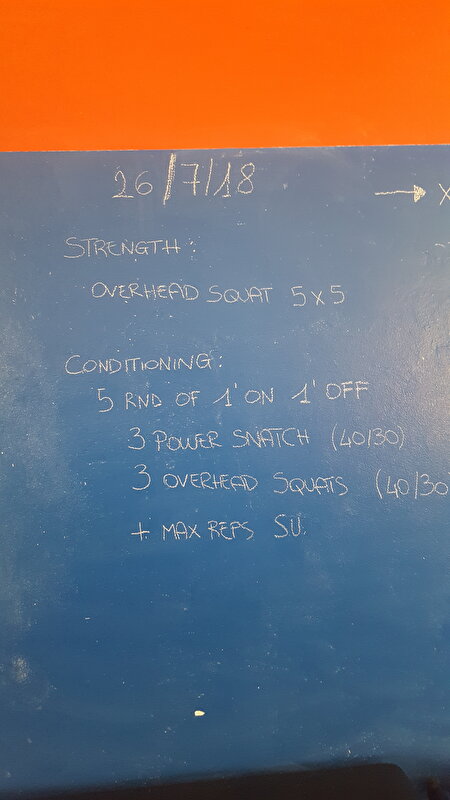 26/7/18
→ X
STRENGTH:
OVERHEAD SQUAT 5x5
CONDITIONING:
5 RND OF 1' ON 1' OFF
3 POWER SNATCH (40/30)
3 OVERHEAD SQUATS (40/30
+ MAX REPS SU.